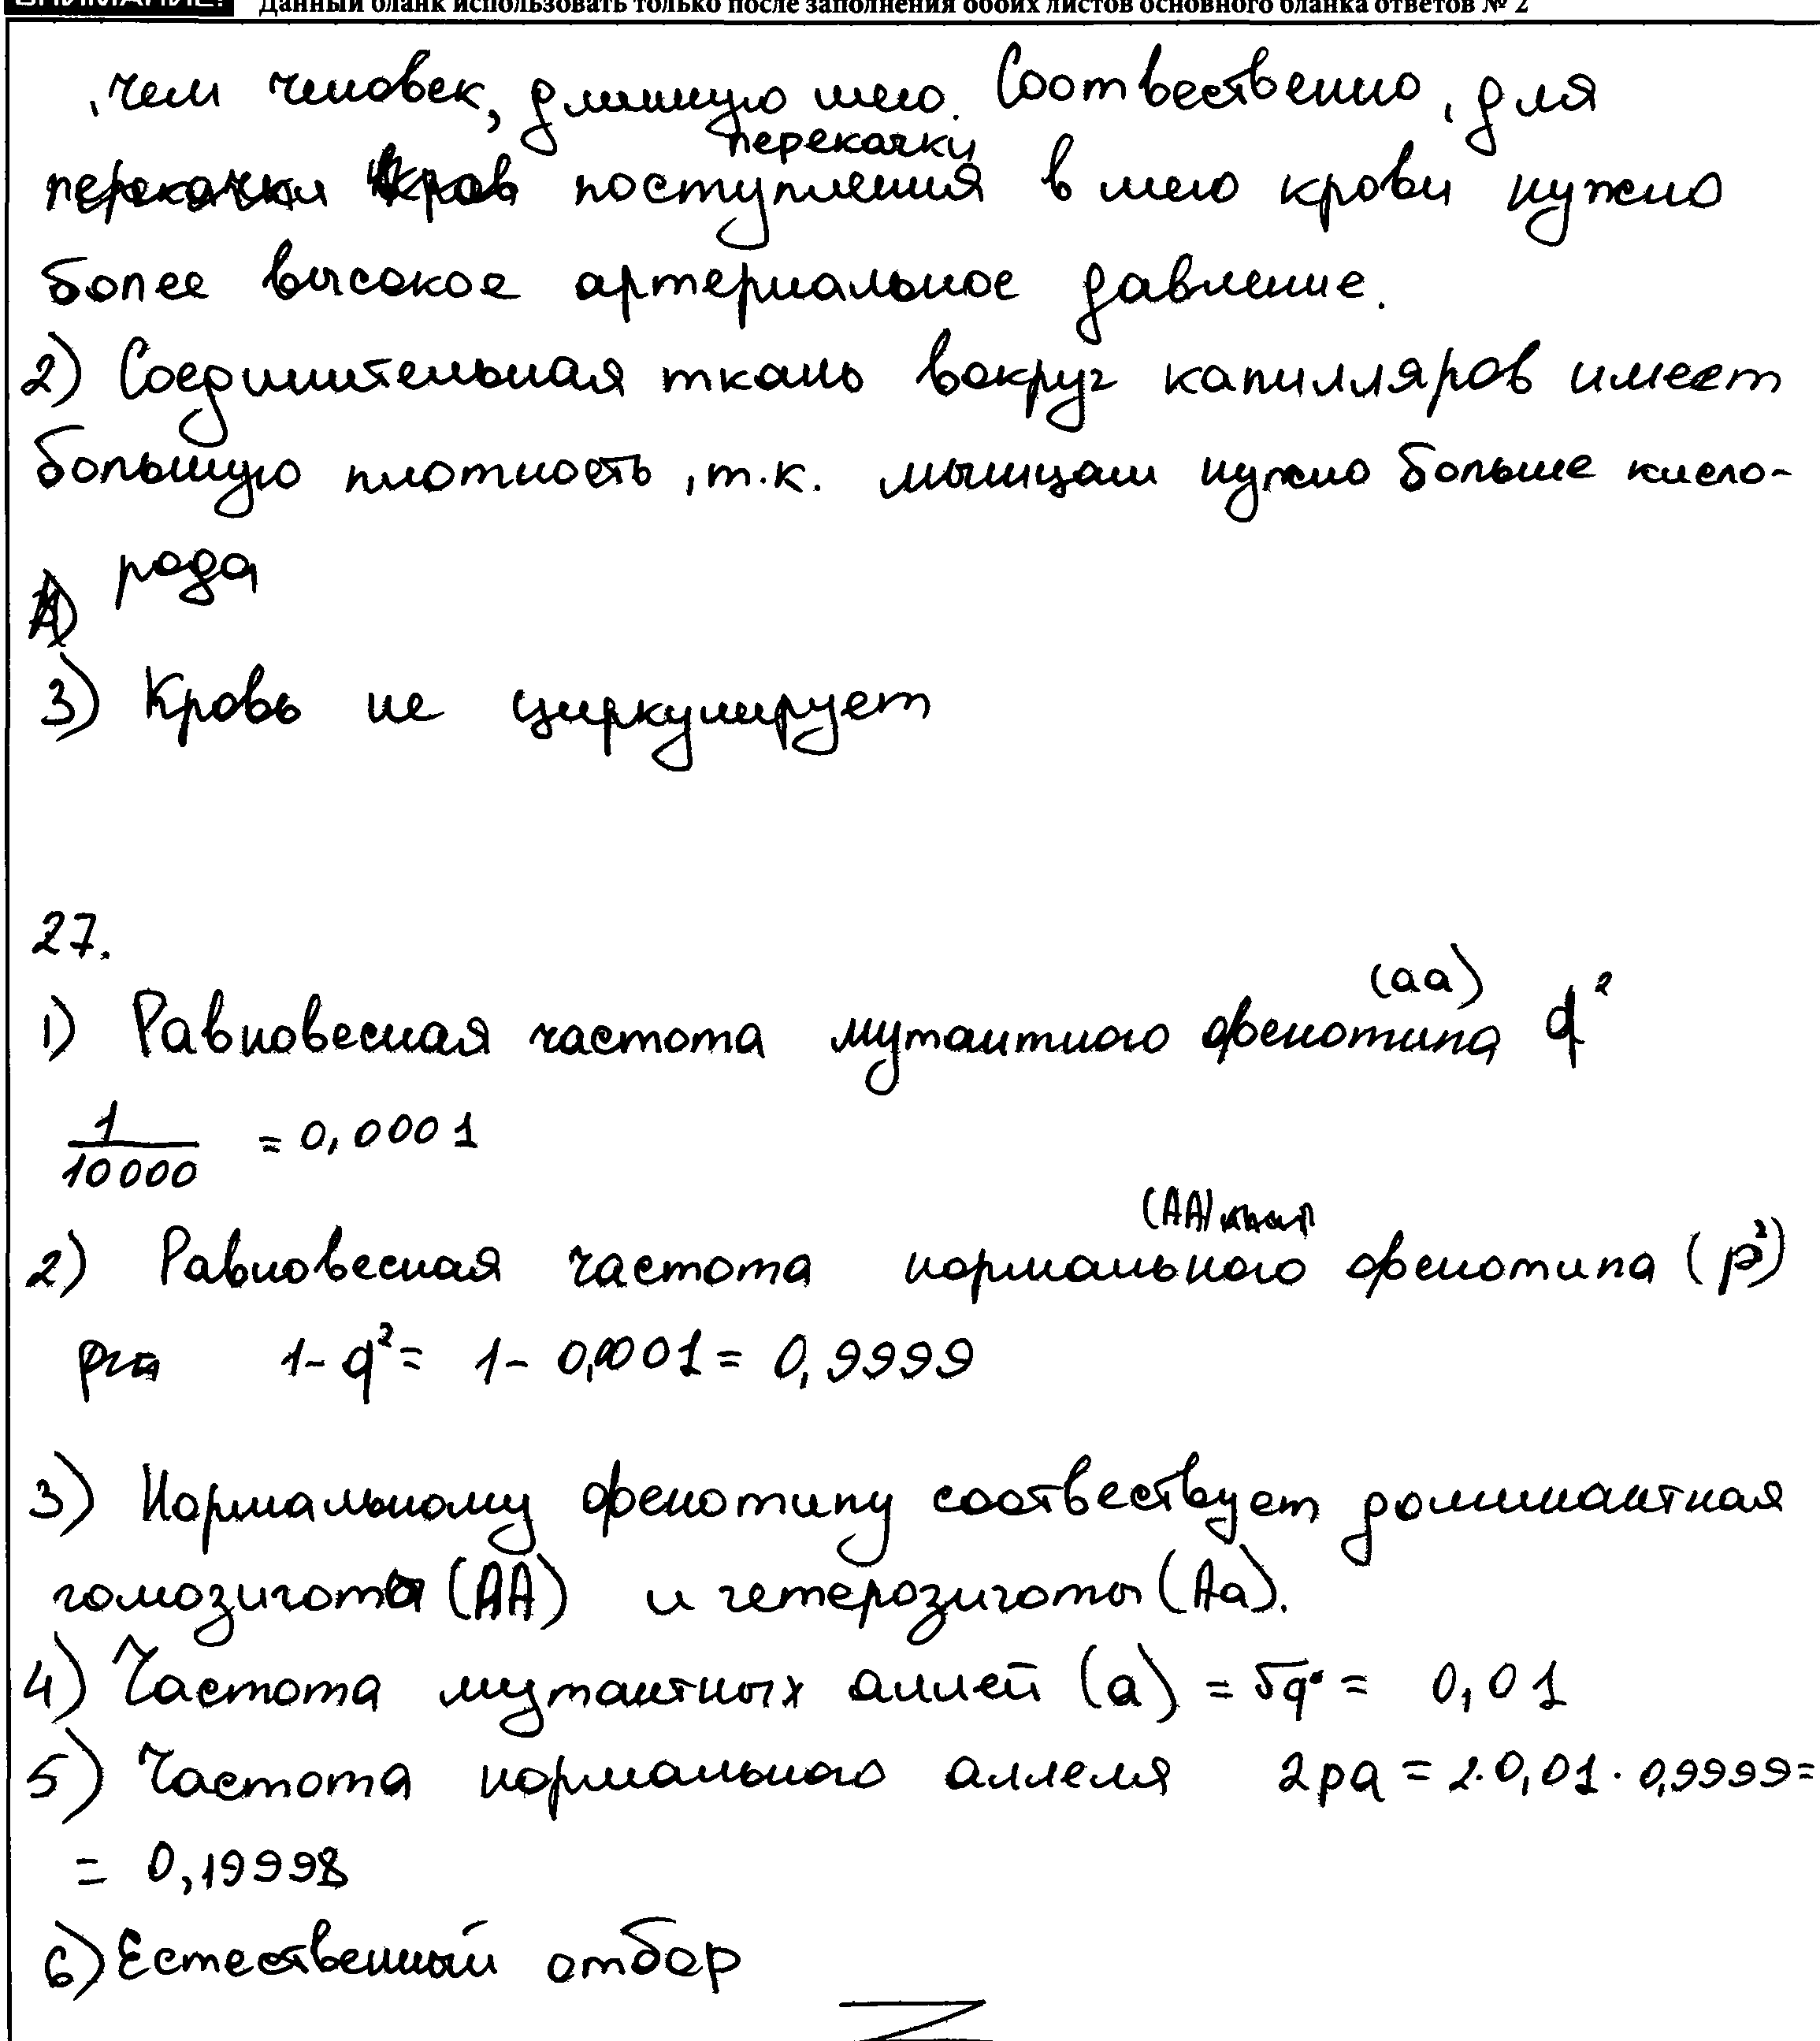 ВНИМАНИЕ! Данный бланк использовать только после заполнения обоих листов основного бланка ответов № 2
, чем человек, длинную шею. Соотвественно, для
перекачки
перекачки кров поступления в шею крови нужно
более высокое артериальное давление.
2) Соединительная ткань вокруг капилляров имеет
большую плотность, т.к. мышцам нужно больше кисло-
рода
3) Кровь не циркулирует
27.
(аа)
1) Равновесная частота мутантного фенотипа q²
1/10000 = 0,0001
(АА)
2) Равновесная частота нормального фенотипа (p²)
1-q² = 1-0,0001 = 0,9999
3) Нормальному фенотипу соотвествует доминантная
гомозигота (АА) и гетерозиготы (Аа).
4) Частота мутантных аллей (а) = √q = 0,01
5) Частота нормального аллеля 2pq = 2·0,01·0,9999=
= 0,19998
6) Естественный отбор
Z